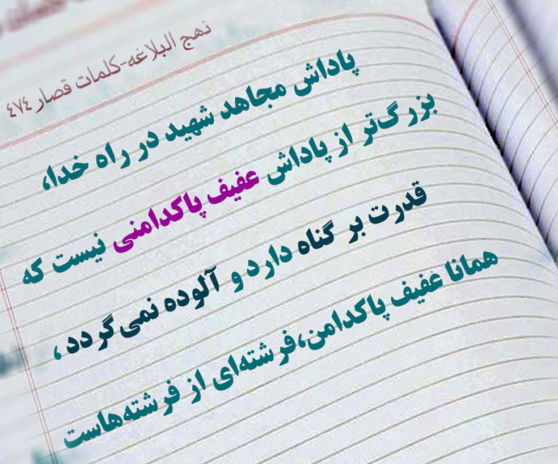 نهج البلاغه-کلمات قصار ۴۷۴
پاداش مجاهد شهید در راه خدا،
بزرگ‌تر از پاداش عفیف پاکدامنی نیست که
قدرت بر گناه دارد و آلوده نمی‌گردد،
همانا عفیف پاکدامن،فرشته‌ای از فرشته‌هاست